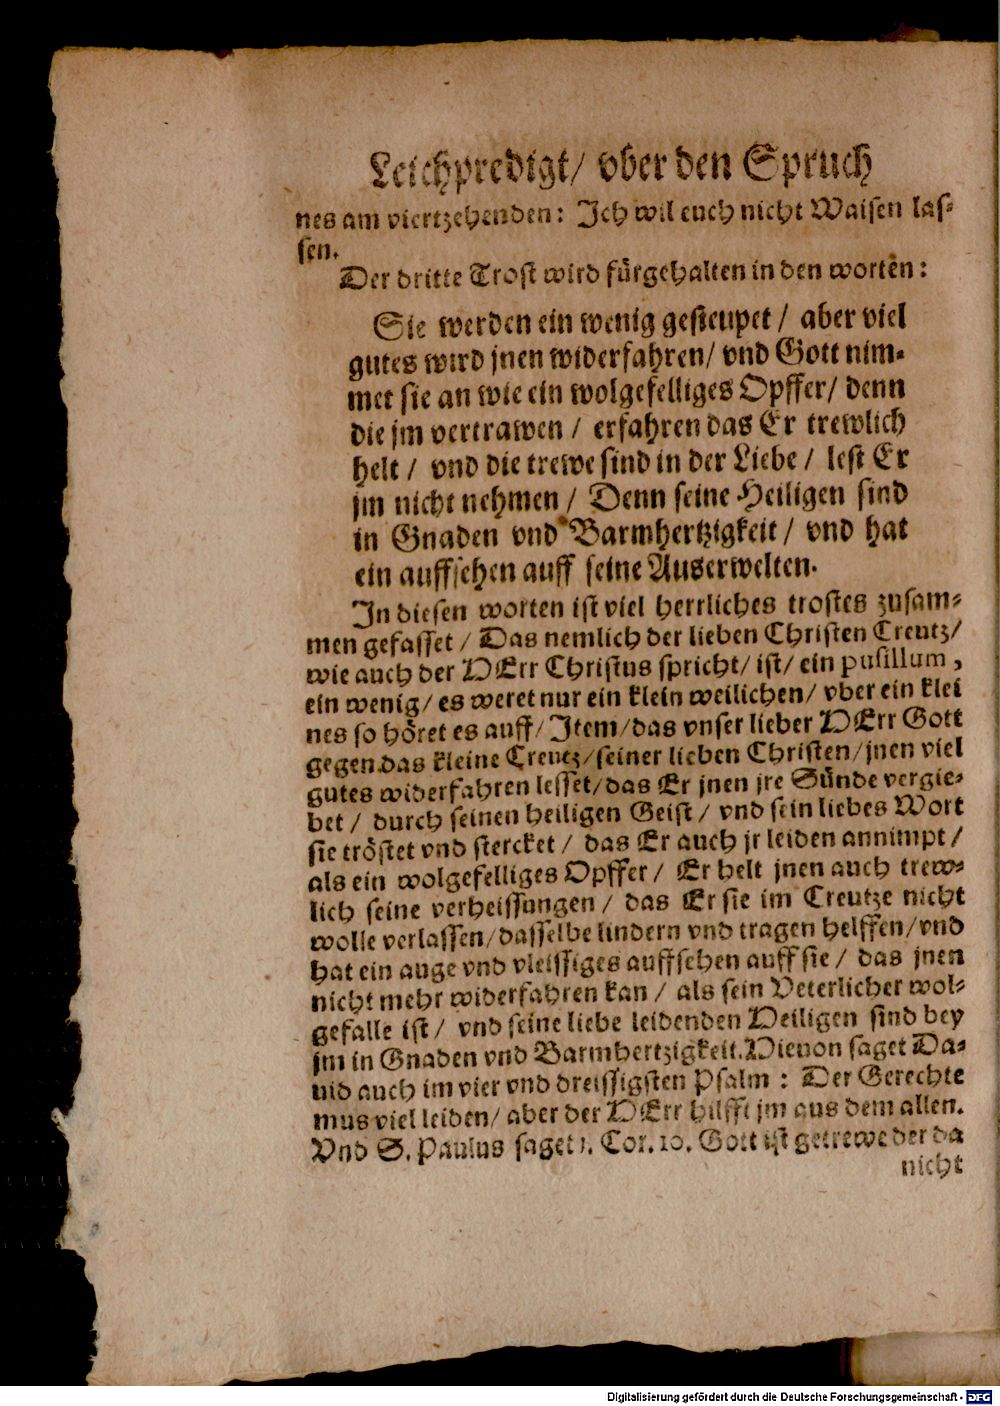 Leichpredigt/ vber den Spruch
nes am viertzehenden: Ich wil euch nicht Waisen las-
sen.
Der dritte Trost wird fürgehalten in den worten:
Sie werden ein wenig gesteupet / aber viel
gutes wird jnen widerfahren/ vnd Gott nim-
met sie an wie ein wolgefelliges Opffer/ denn
die jm vertrawen / erfahren das Er trewlich
helt / vnd die trewe sind in der Liebe / lest Er
jm nicht nehmen / Denn seine Heiligen sind
in Gnaden vnd Barmhertzigkeit / vnd hat
ein auffsehen auff seine Auserwelten.
In diesen worten ist viel herrliches trostes zusam-
men gefasset / Das nemlich der lieben Christen Creutz/
wie auch der HErr Christus spricht/ ist/ ein pusillum,
ein wenig/ es weret nur ein klein weilichen/ vber ein klei
nes so höret es auff/ Item/das vnser lieber HErr Gott
gegen das kleine Creutz/seiner lieben Christen/jnen viel
gutes widerfahren lesset/das Er jnen jre Sünde vergie-
bet / durch seinen heiligen Geist / vnd sein liebes Wort
sie tröstet vnd stercket / das Er auch jr leiden annimpt /
als ein wolgefelliges Opffer / Er helt jnen auch trew-
lich seine verheissungen / das Er sie im Creutze nicht
wolle verlassen/dasselbe lindern vnd tragen helffen/vnd
hat ein auge vnd vleissiges auffsehen auff sie / das jnen
nicht mehr widerfahren kan / als sein Veterlicher wol-
gefalle ist / vnd seine liebe leidenden Heiligen sind bey
jm in Gnaden vnd Barmhertzigkeit. Hieuon saget Da-
uid auch im vier vnd dreissigsten Psalm : Der Gerechte
mus viel leiden/ aber der HErr hilfft jm aus dem allen.
Vnd S. Paulus saget 1. Cor. 10. Gott ist getrewe der da
nicht
Digitalisierung gefördert durch die Deutsche Forschungsgemeinschaft - DFG